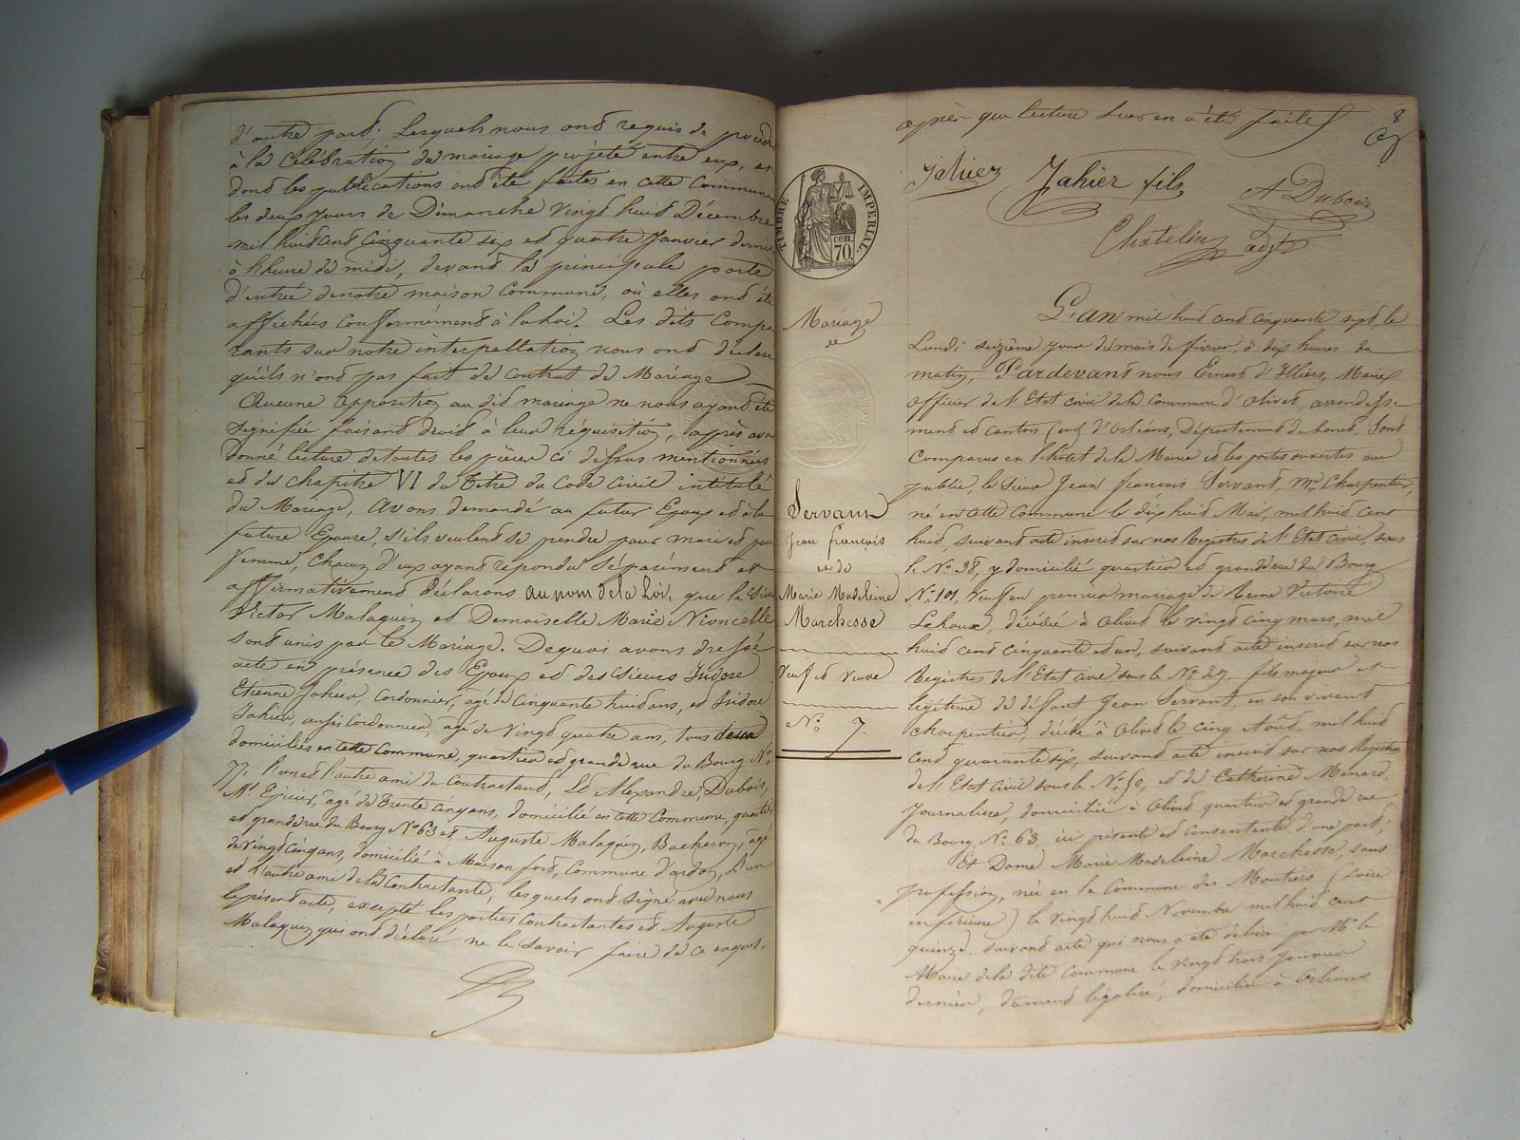 d'autre part; Lesquels nous ont requis de procéd
à la Célébration du mariage projeté entre eux, et
dont les publications ont été faites en cette Commune
les deux Jours de Dimanche Vingt huit Décembre
mil huit cent Cinquante six et quatre Janvier dernier
à l'heure de midi, devant la principale porte
d'entrée de notre maison Commune, où elles ont été
affichées Conformément à la Loi. Les dits Compa
rants sur notre interpellation nous ont déclaré
qu'ils n'ont pas fait de Contrat de Mariage
Aucune opposition au dit mariage ne nous ayant été
Signifiée faisant droit à leur réquisition, après avoir
donné lecture de toutes les pièces ci dessus mentionnées
et du chapitre VI du Titre du Code Civil intitulé
du Mariage, avons demandé au futur Epoux et à la
future Epouse, s'ils veulent se prendre pour mari et pour
femme, Chacun d'eux ayant répondu séparément et
affirmativement Déclarons au nom de la Loi, que le Sieur
Victor Malaquin et Demoiselle Marie Nioncelle
sont unis par le Mariage. De quoi avons dressé
acte en présence des Epoux et des Sieurs Isidore
Etienne Jahier, Cordonnier, âgé de Cinquante huit ans, et Isidore
Jahier, aussi Cordonnier, âgé de Vingt quatre ans, tous deux
domiciliés en cette Commune, quartier et grande rue du Bourg No.
77, l'un et l'autre ami du Contractant, Et Alexandre Dubois,
Md. Epicier, âgé de Trente cinq ans, domicilié en cette Commune, quartier
et grande rue du Bourg No. 63 et Auguste Malaquin, âgé
de Vingt cinq ans, domicilié à Maison fort, Commune d'ardon, l'un
et l'autre ami de la Contractante, lesquels ont signé avec nous
le présent acte, excepté les parties Contractantes et Auguste
Malaquin qui ont déclaré ne le savoir faire de ce enquis.
8
après que lecture leur en a été faite
Jahier Jahier fils A Dubois
Chatelin adjt
TIMBRE IMPÉRIAL
70
Mariage
de
Servant
Jean françois
et de
Marie Madeleine
Marchesse
Veuf et Veuve
No. 7.
L'AN mil huit cent cinquante sept, le
Lundi seizième jour du mois de février, à dix heures du
matin, Pardevant nous Ernest d'Illiers, Maire
officier de l'Etat civil de la Commune d'Olivet, arrondisse-
ment et canton sud d'Orléans, Département du Loiret, Sont
Comparus en l'hôtel de la Mairie et les portes ouvertes au
public, le Sieur Jean françois Servant, Md. Charpentier,
né en cette Commune le dix huit Mai, mil huit cent
huit, suivant acte inscrit sur nos Registres de l'Etat civil, sous
le No. 38, y domicilié quartier et grande rue du Bourg
No. 101, Veuf en premier mariage de Reine Victoire
Lahoux, décédée à Olivet le vingt cinq mars, mil
huit cent cinquante et un, suivant acte inscrit sur nos
Registres de l'Etat civil sous le No. 29. fils majeur et
légitime de défunt Jean Servant, en son vivant
charpentier, décédé à Olivet le cinq Août, mil huit
cent quarante six, suivant acte inscrit sur nos Registres
de l'Etat civil sous le No. 50, et de Catherine Menard,
Journalière, domiciliée à Olivet quartier et grande rue
du Bourg No. 63, ici présente et consentante d'une part;
Et Dame Marie Madeleine Marchesse, sans
profession, née en la Commune des Moutiers (Loire
inférieure) le vingt huit Novembre mil huit cent
quinze, suivant acte qui nous a été délivré par Mr. le
Maire de la dite Commune le vingt trois Janvier
dernier, dûment légalisé, domiciliée à Orléans